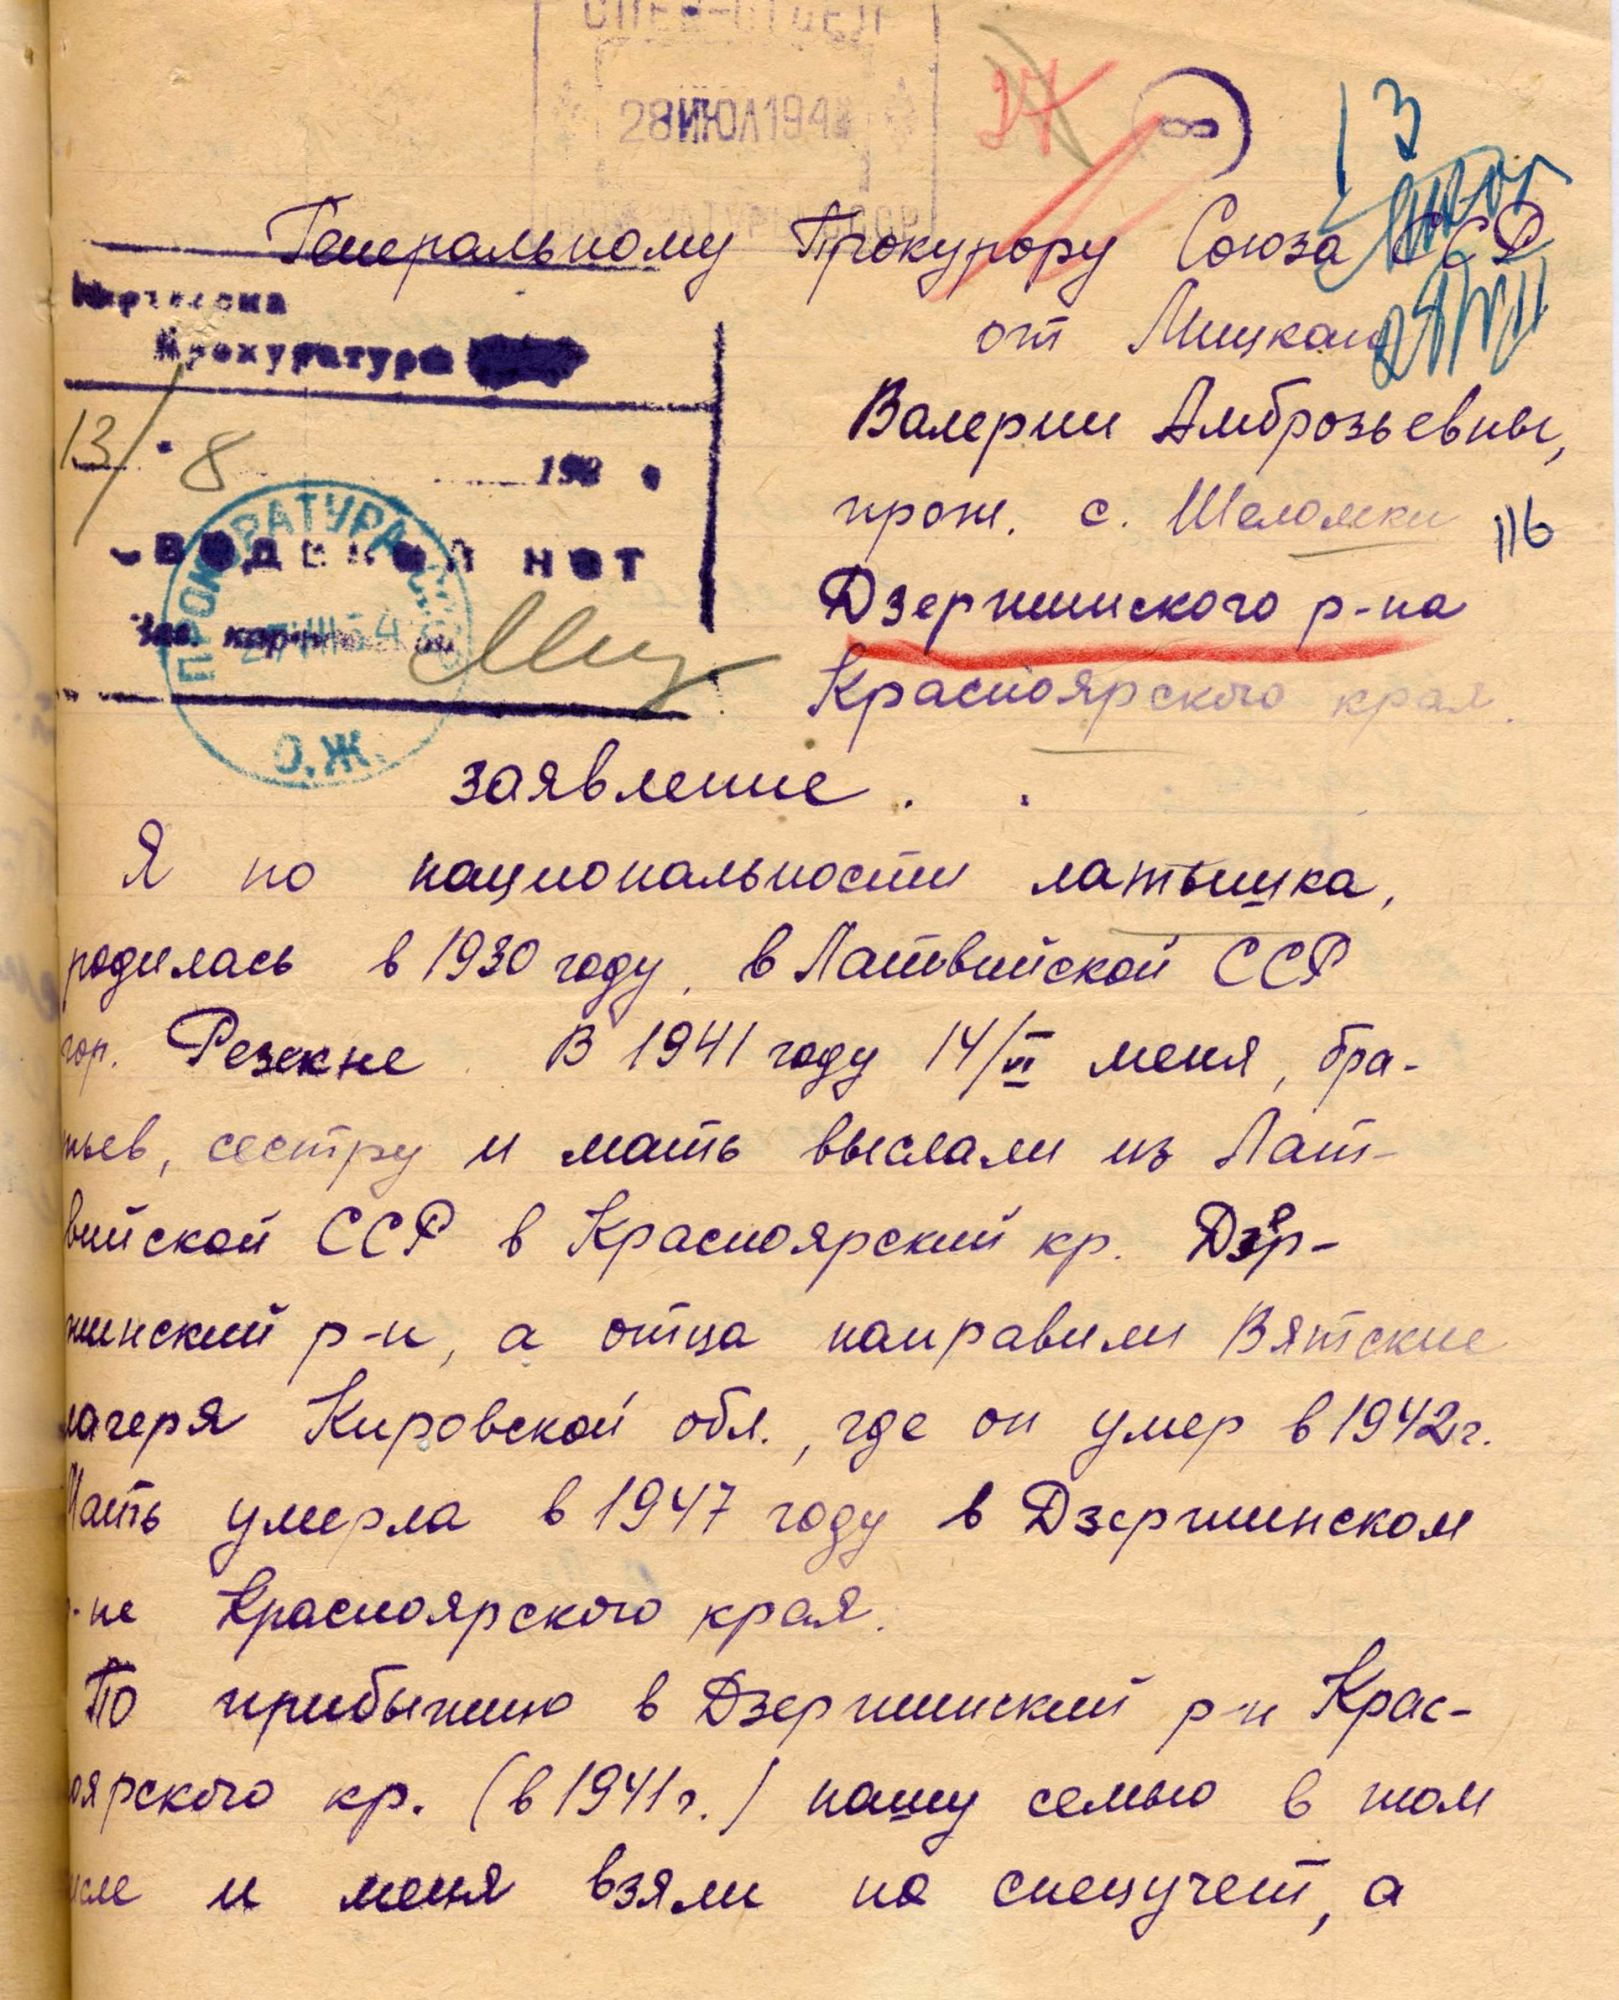 СПЕЦ-ОТДЕЛ
28 ИЮЛ 194
27
8
13
Генеральному Прокурору Союза ССР
от Мицкан
Валерии Амброзьевны,
прож. с. Шеломки
116
Дзержинского р-на
Красноярского края.
Прокуратура
13/8
195
ПРОКУРАТУРА СССР
О.Ж.
нет
Зав.
заявление.
Я по национальности латышка,
родилась в 1930 году, в Латвийской ССР
гор. Резекне. В 1941 году 14/VI меня, бра-
тьев, сестру и мать выслали из Лат-
вийской ССР в Красноярский кр. Дзер-
жинский р-н, а отца направили Вятские
лагеря Кировской обл., где он умер в 1942 г.
Мать умерла в 1947 году в Дзержинском
р-не Красноярского края.
По прибытию в Дзержинский р-н Крас-
ноярского кр. (в 1941 г.) нашу семью в том
числе и меня взяли на спецучет, а